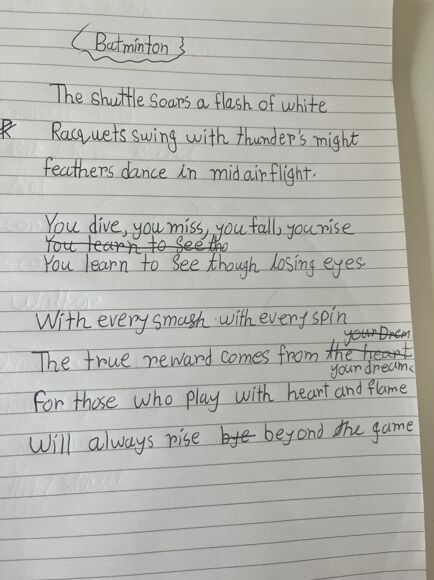 Batminton
The shuttle soars a flash of white
R Racquets swing with thunder's might
feathers dance in mid air flight.
You dive, you miss, you fall, you rise
You learn to see tho
You learn to see though losing eyes
With every smash with every spin
your Drem
The true reward comes from the heart
your dream
for those who play with heart and flame
Will always rise bye beyond the game